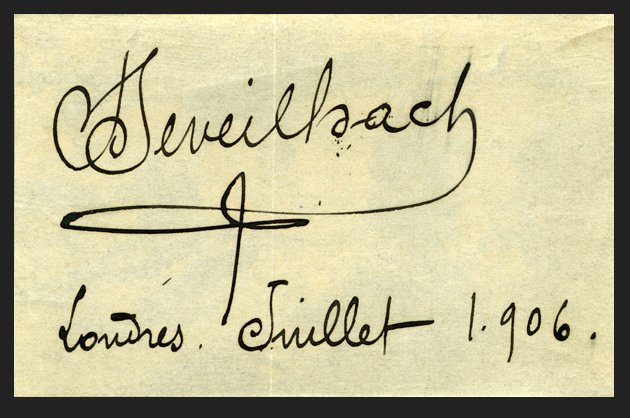 Seveilhac
Londres. Juillet 1.906.